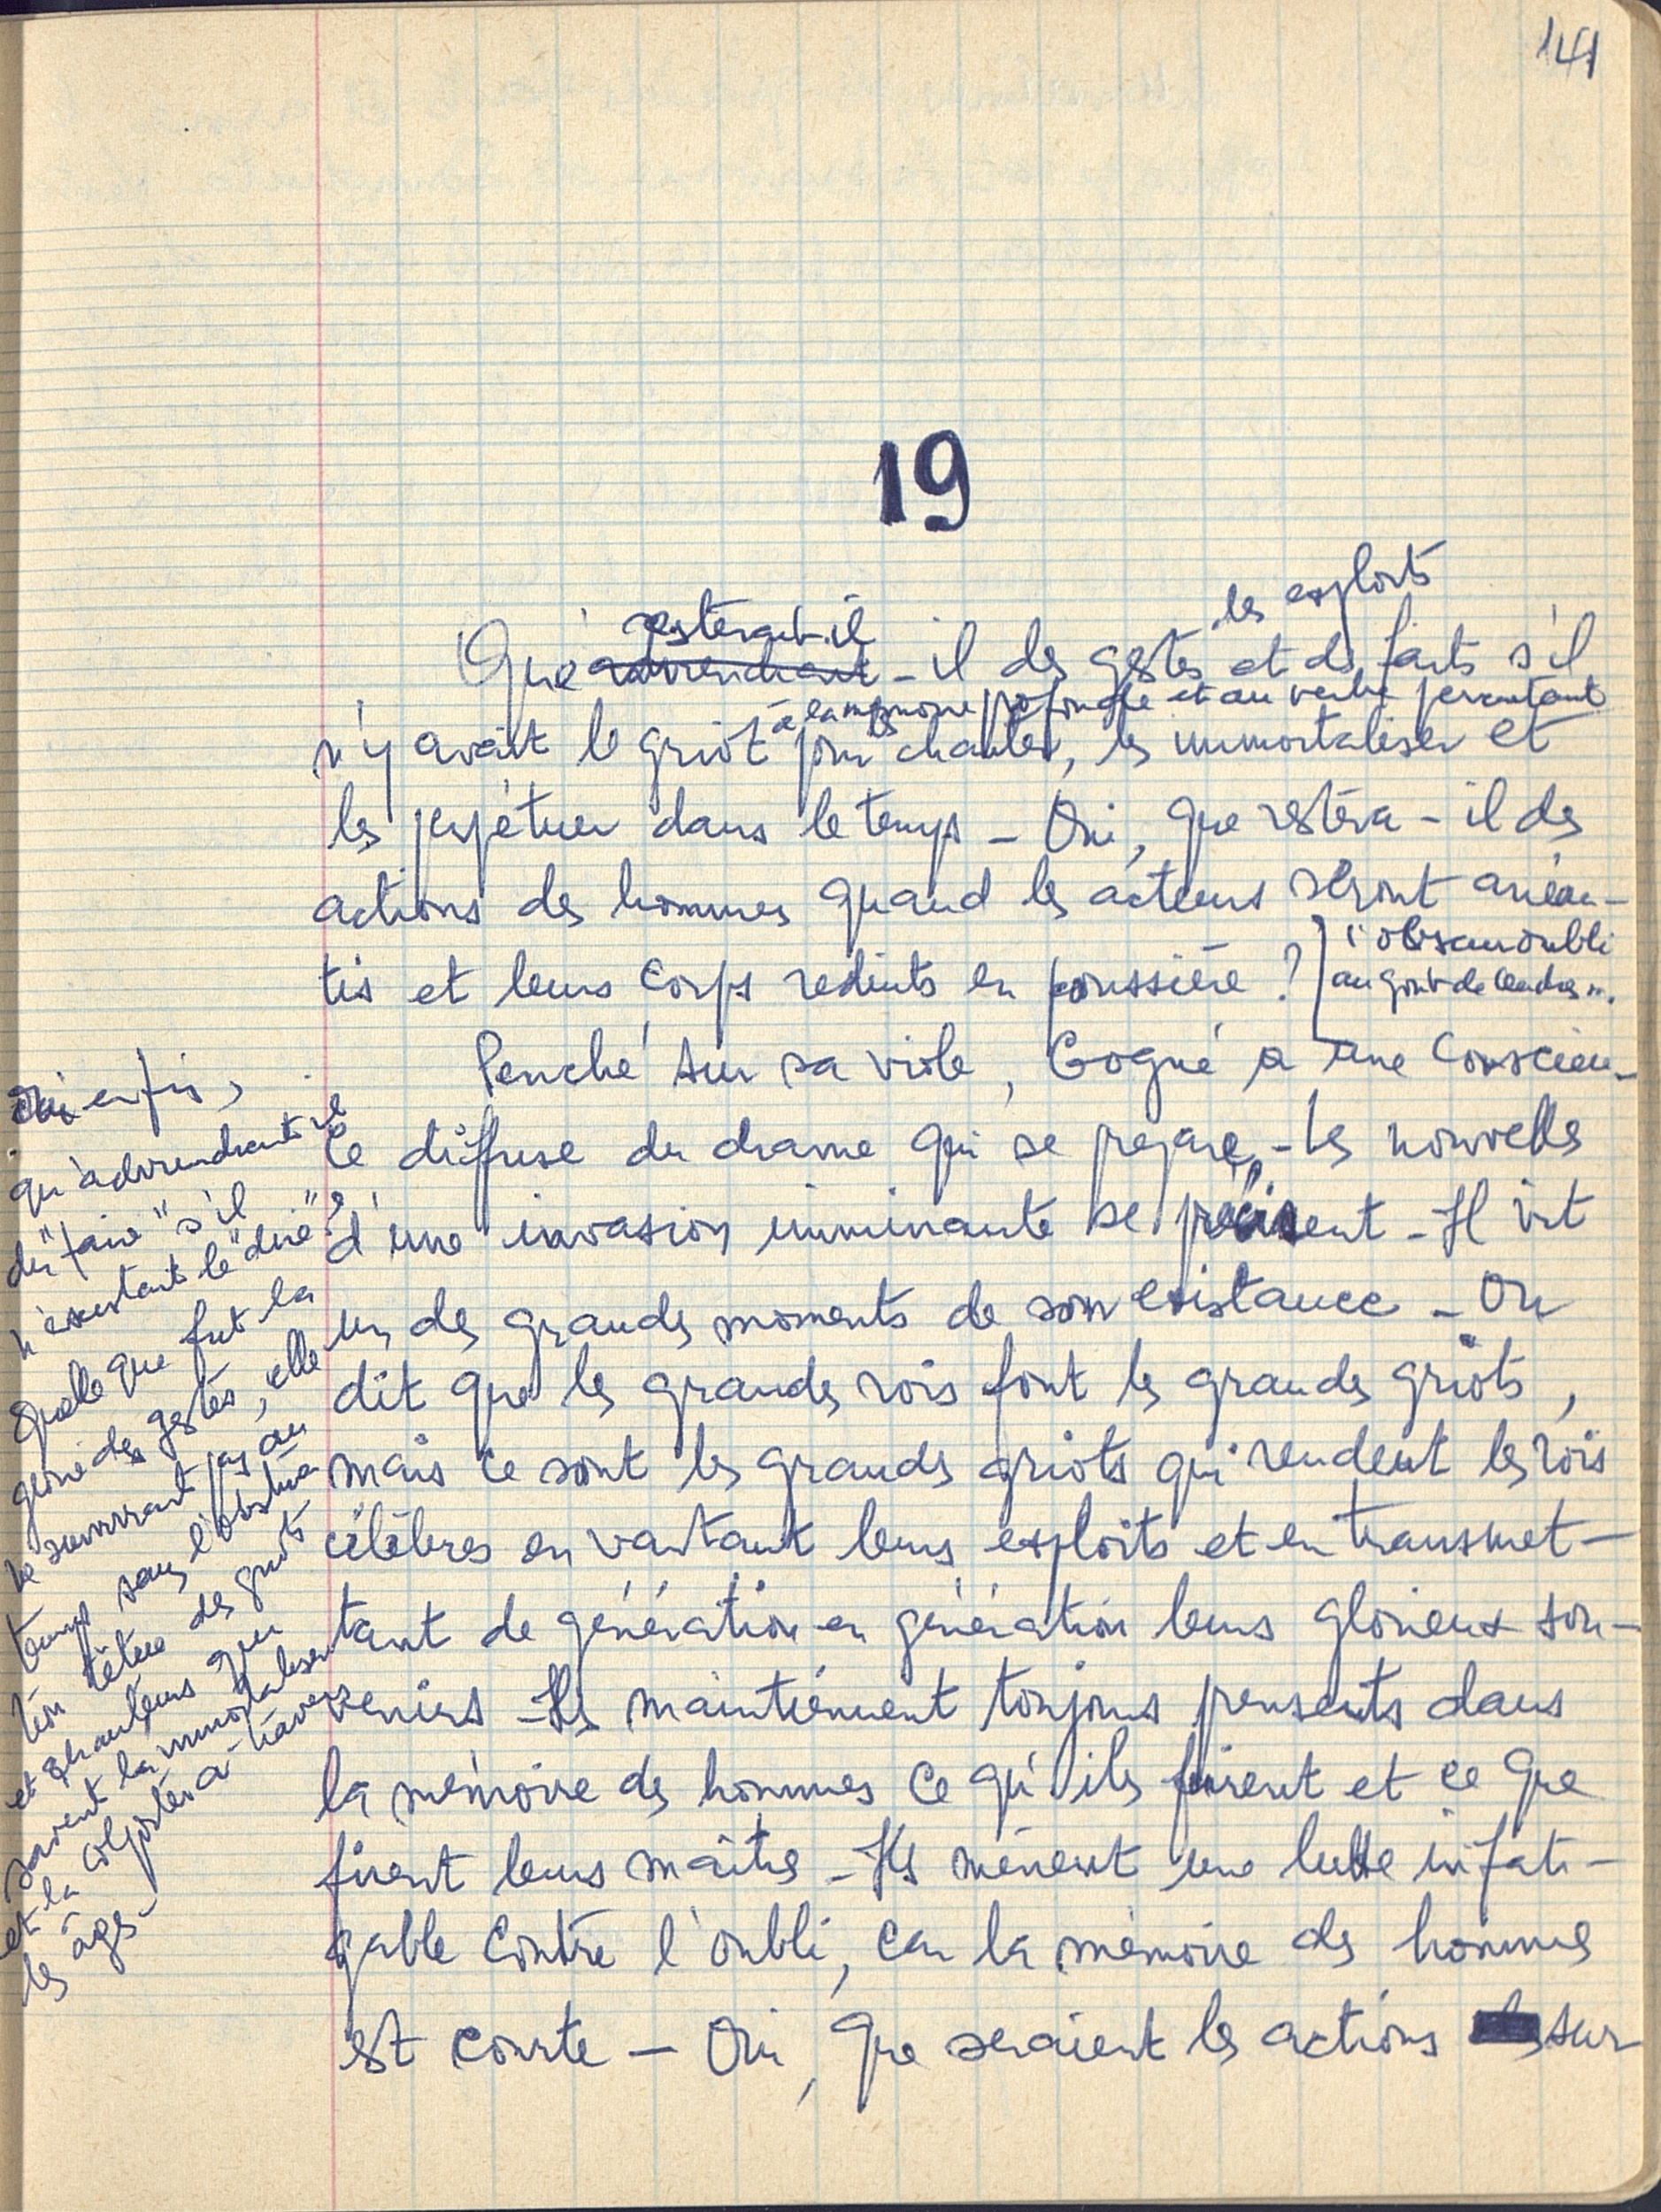 141
19
les exploits
resterait-il
Que adviendrait-il des gestes et des faits s'il
à la mémoire profonde et au verbe percutant
n'y avait le griot pour les chanter, les immortaliser et
les perpétuer dans le temps - Oui, que restera-il des
actions des hommes quand les acteurs seront anéan-
tis et leurs corps reduits en poussière ?
l'obscur oubli
au goût de cendres".
Penché sur sa viole, Gogné a une conscien-
ce diffuse du drame qui se prepare - Les nouvelles
d'une invasion imminante se précisent - Il vit
un des grands moments de son existance - On
dit que les grands rois font les grands griots,
mais ce sont les grands griots qui rendent les rois
célèbres en vantant leurs exploits et en transmet-
tant de génération en génération leurs glorieux sou-
venirs - Ils maintiennent toujours présents dans
la mémoire des hommes ce qu'ils furent et ce que
firent leurs maîtres - Ils mènent une lutte infati-
gable contre l'oubli, car la mémoire des hommes
est courte - Oui, que seraient les actions sur
Oui enfin,
qu'adviendrait-il
du "faire" s'il
n'existait le "dire",
Quelle que fut la
gloire des gestes, elle
ne survivrait pas au
temps sans l'obstina
tion têtue des griots
et chanteurs qui
savent la immortaliser
et la colporter à travers
les âges -